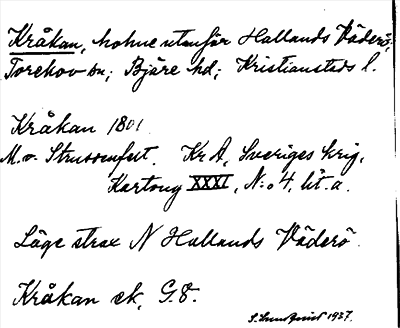 Kråkan, holme utanför Hallands Väderö,
Torekov sn; Bjäre hd; Kristianstads l.
Kråkan 1801
M. v. Strussenfelt. Kr A, Sveriges krig,
Kartong XXXI, N:o 4, lit. a.
Läge strax N Hallands Väderö.
Kråkan ek, G. 8.
S. Lundquist 1937.